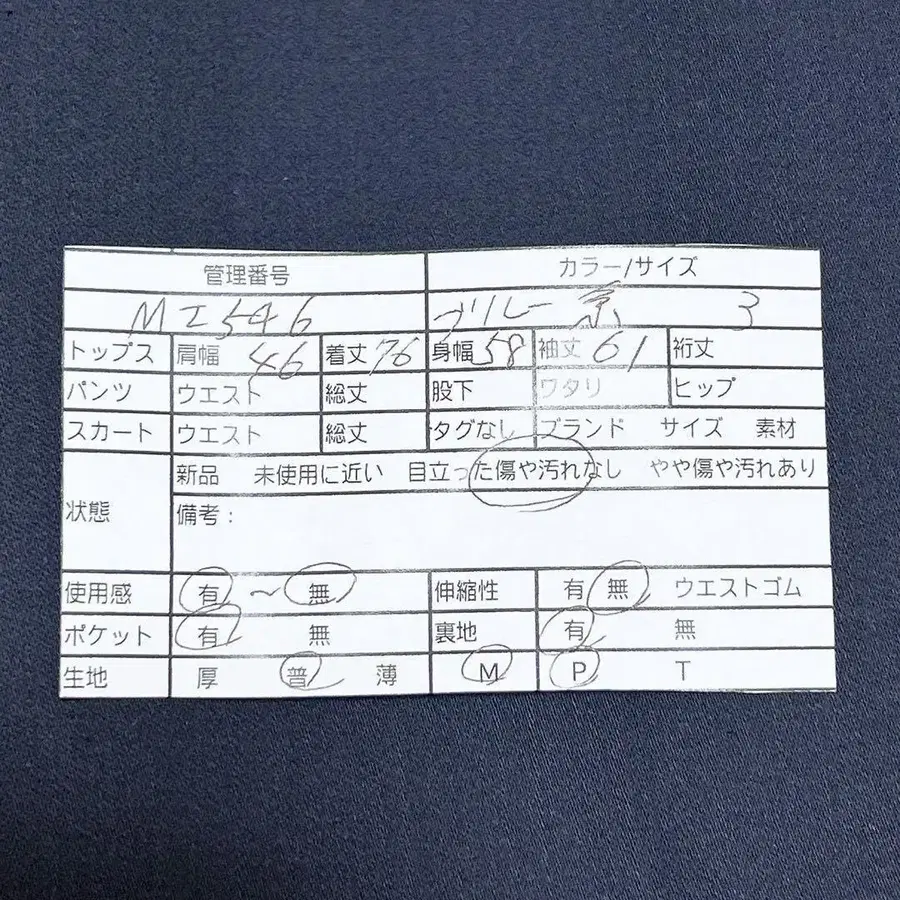 管理番号 カラー/サイズ
MI546 ブルー系 3
トップス 肩幅 46 着丈 76 身幅 58 袖丈 61 裄丈
パンツ ウエスト 総丈 股下 ワタリ ヒップ
スカート ウエスト 総丈 タグなし ブランド サイズ 素材
状態 新品 未使用に近い 目立った傷や汚れなし やや傷や汚れあり
備考:
使用感 有 ~ 無 伸縮性 有 無 ウエストゴム
ポケット 有 無 裏地 有 無
生地 厚 普 薄 M P T